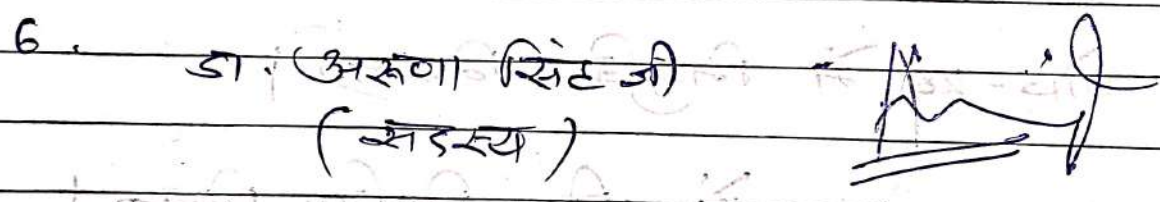 6. डा. अरूणा सिंह जी -
(सदस्य)